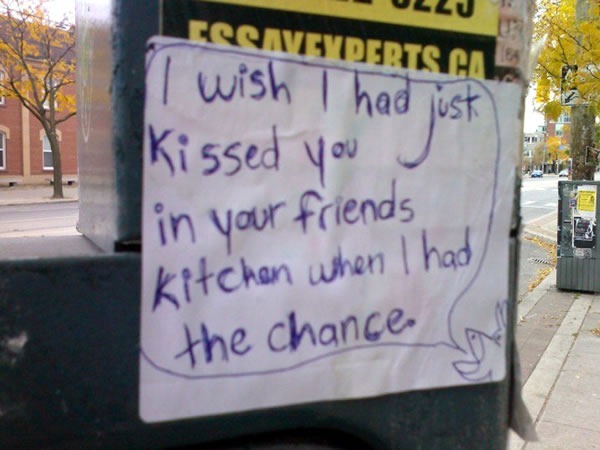 ESSAYEXPERTS.CA
I wish I had just
kissed you
in your friends
kitchen when I had
the chance.